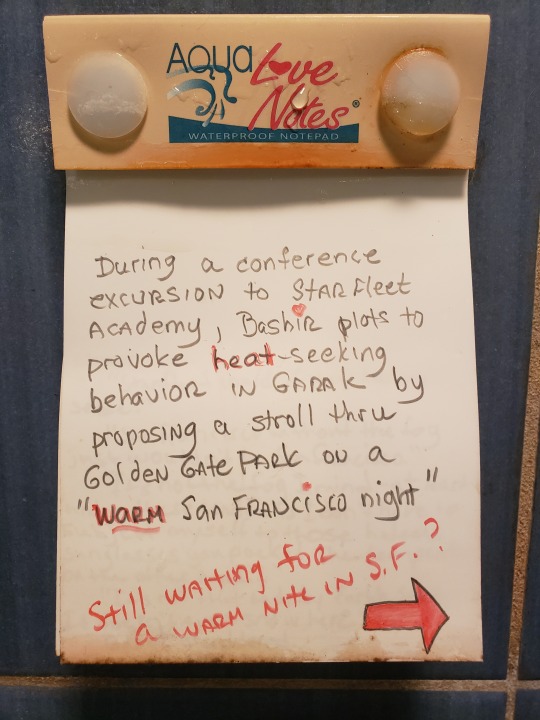 Aqua Love
Notes®
WATERPROOF NOTEPAD
During a conference
EXCURSION to STARFleet
ACADEMY, BashIR plots to
provoke heat-seeking
behavior IN GARAK by
proposing a stroll thru
Golden Gate PARK on a
"WARM San FRANCisco night"
Still waiting for
a WARM Nite IN S.F.?